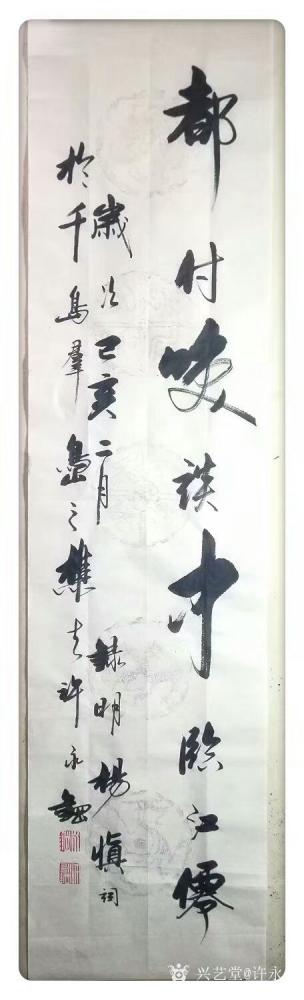 都付咲談中臨江僊
歲次己亥二月 錄明楊慎詞
於千島群島之樵夫許永
兴艺堂@许永